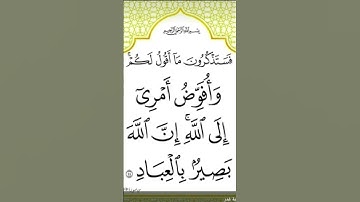 بسم الله الرحمن الرحيم
فَسَتَذْكُرُونَ مَآ أَقُولُ لَكُمْ ۚ
وَأُفَوِّضُ أَمْرِىٓ
إِلَى ٱللَّهِ ۚ إِنَّ ٱللَّهَ
بَصِيرٌۢ بِٱلْعِبَادِ